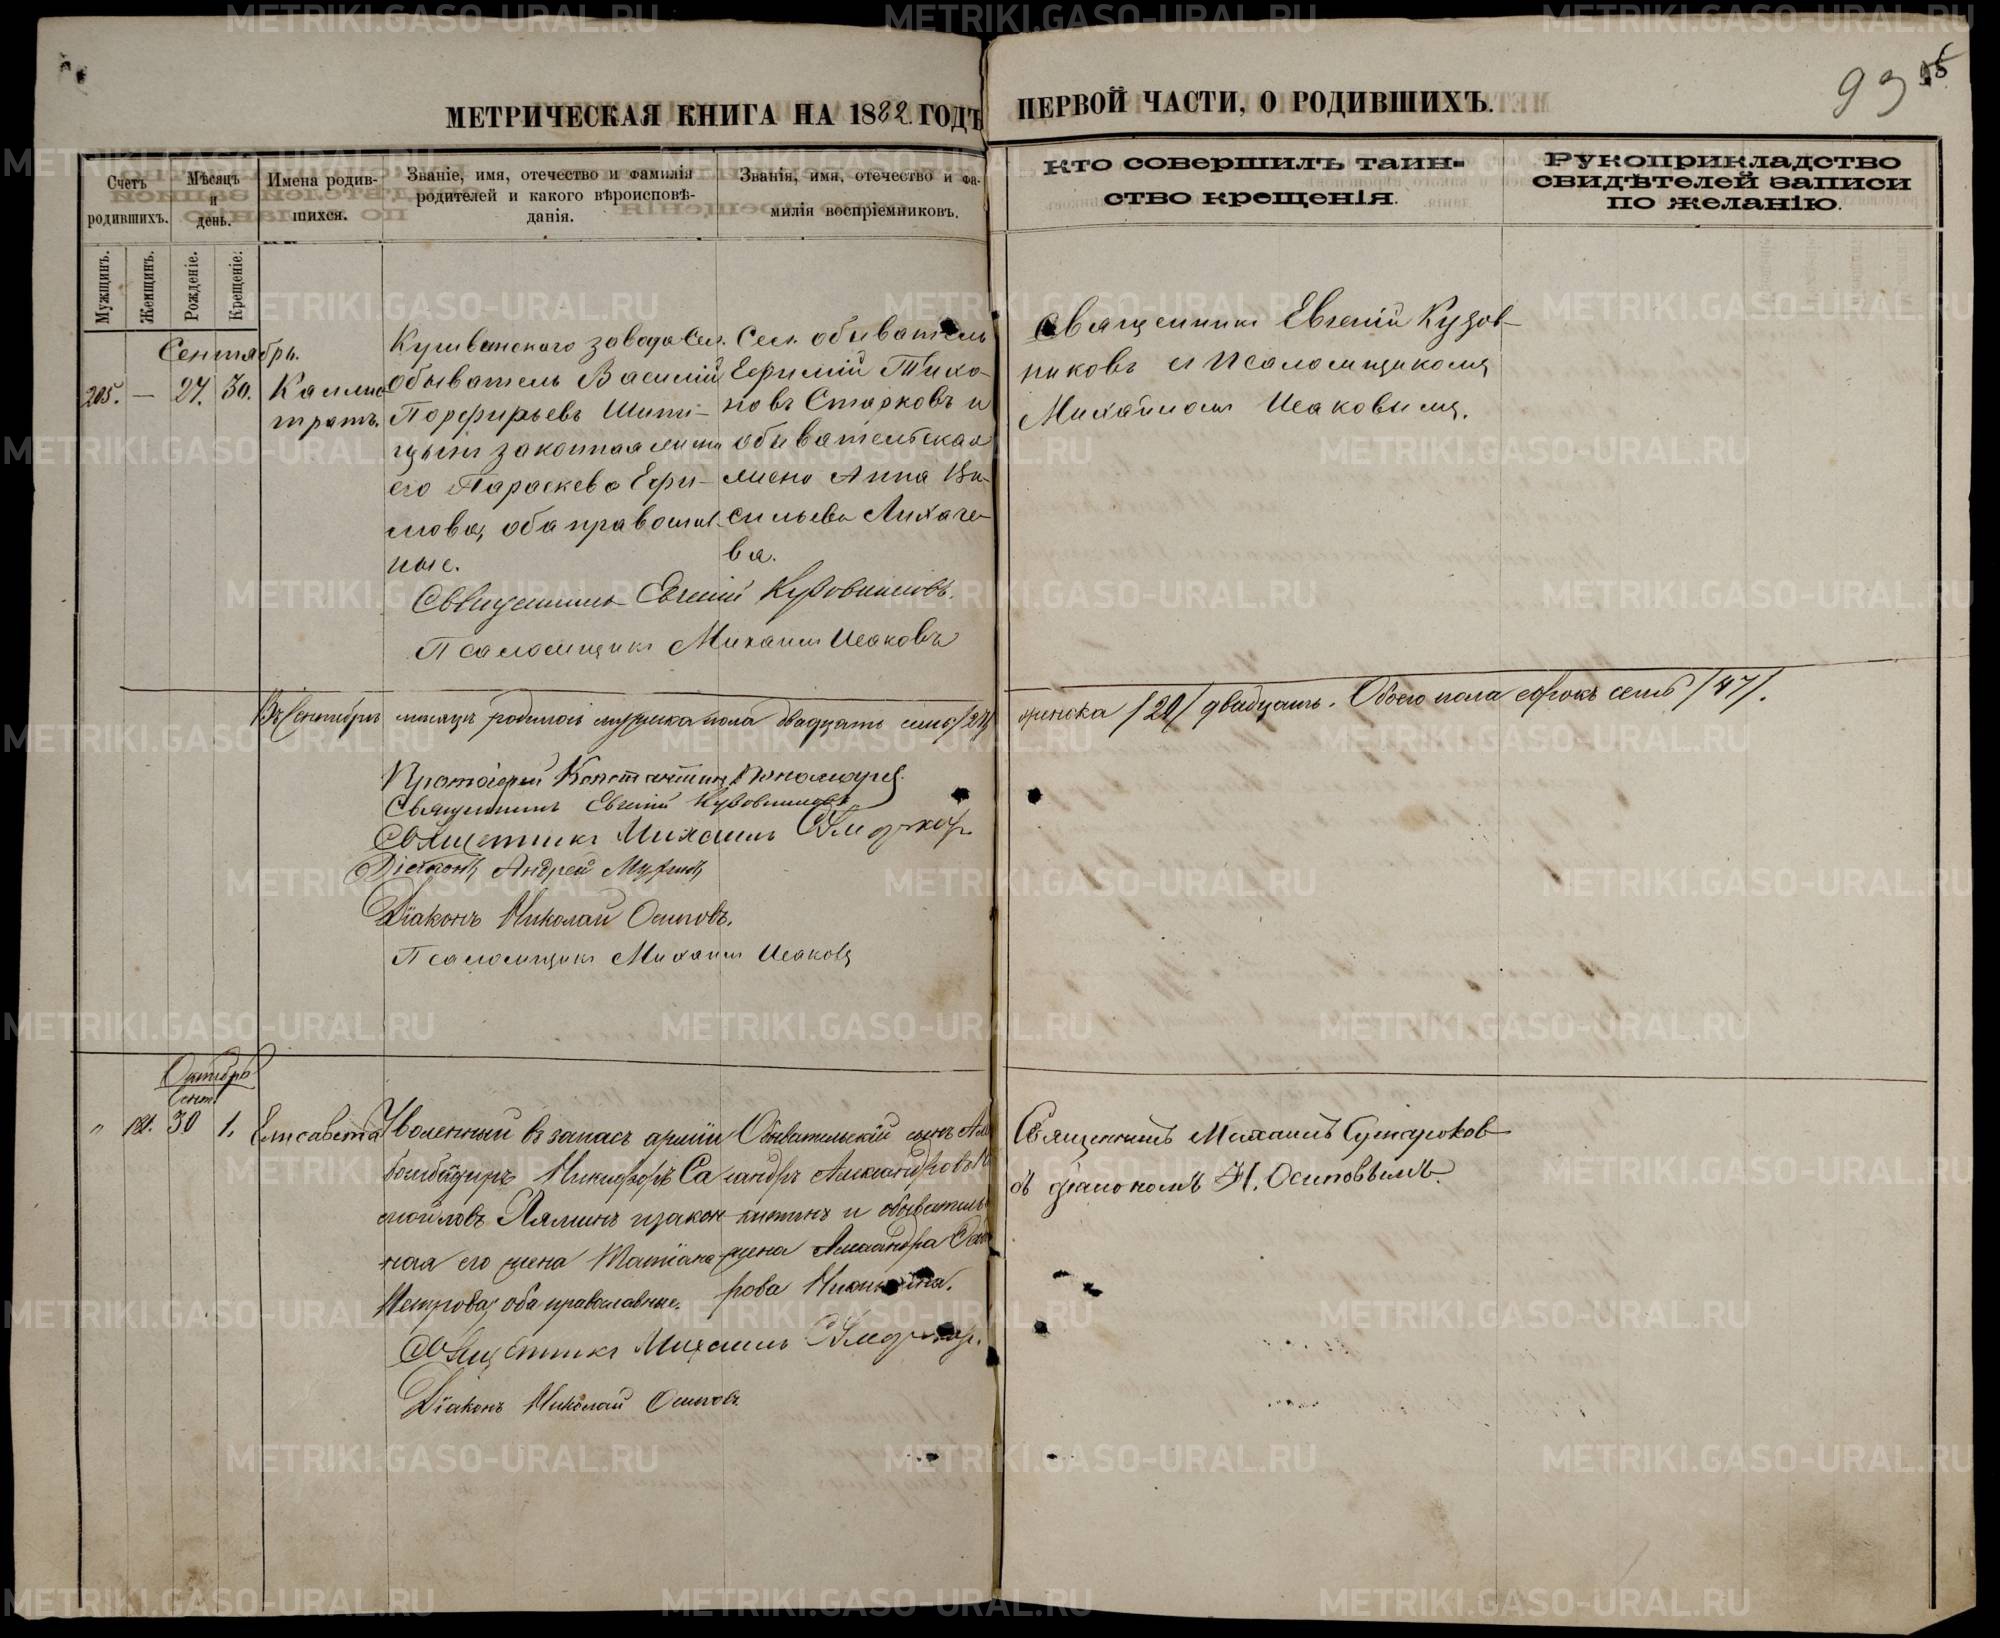 МЕТРИЧЕСКАЯ КНИГА НА 1882 ГОДЪ ПЕРВОЙ ЧАСТИ, О РОДИВШИХЪ.
93
Счетъ родившихъ.
Мужщинъ.
Женщинъ.
Мѣсяцъ и день.
Рожденіе.
Крещеніе.
Имена родив-
шихся.
Званіе, имя, отечество и фамилія
родителей и какого вѣроисповѣ-
данія.
Званія, имя, отечество и фа-
милія воспріемниковъ.
Кто совершилъ таин-
ство крещенія.
Рукоприкладство
свидѣтелей записи
по желанію.
Сентябрь.
205. — 27. 30.
Каллис
тратъ.
Кушвинскаго завода Сел.
обыватель Василій
Порфирьевъ
законная жена
его Параскева Ефи-
мова, оба православ
ные.
Сел. обыватель
Ефимій Тихо-
новъ Старковъ и
обывательская
жена Анна Ва-
сильева Лихаче-
ва.
Священникъ Евгеній Кузов-
никовъ и Псаломщикомъ
Михаиломъ Исаковымъ.
Священникъ Евгеній Кузовниковъ.
Псаломщикъ Михаилъ Исаковъ
Въ Сентябрѣ мѣсяцѣ родилось мужеска пола двадцать семь /27/
женска /20/ двадцать. Обоего пола сорокъ семь /47/.
Протоіерей Константинъ Пономаревъ
Священникъ Евгеній Кузовниковъ
Священникъ Михаилъ
Діаконъ Андрей
Діаконъ Николай Осиповъ.
Псаломщикъ Михаилъ Исаковъ
Октябрь
Сент.
" 181. 30 1.
Елисавета
Уволенный въ запасъ арміи
бомбадиръ Никифоръ Са
мойловъ Лялинъ и закон
ная его жена Татіана
Петрова, оба православные.
Обывательскій сынъ Алек
сандръ Александровъ
и обыватель
жена Александра
рова
Священникъ Михаилъ Сумароков
съ діакономъ Н. Осиповымъ.
Священникъ Михаилъ
Діаконъ Николай Осиповъ
METRIKI.GASO-URAL.RU